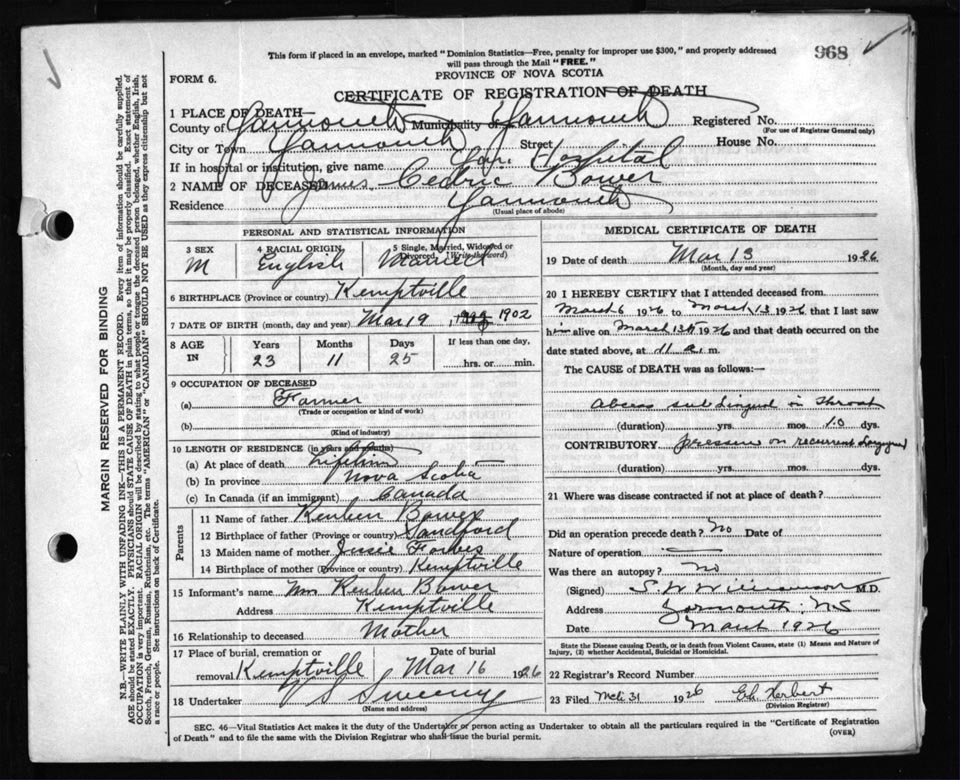 This form if placed in an envelope, marked "Dominion Statistics—Free, penalty for improper use $300," and properly addressed
will pass through the Mail "FREE."
968
PROVINCE OF NOVA SCOTIA
FORM 6.
CERTIFICATE OF REGISTRATION OF DEATH
1 PLACE OF DEATH
County of Yarmouth Municipality of Yarmouth Registered No.
(For use of Registrar General only)
City or Town Yarmouth Street House No.
If in hospital or institution, give name Yar. Hospital
2 NAME OF DECEASED James Cedric Bower
Residence Yarmouth
(Usual place of abode)
PERSONAL AND STATISTICAL INFORMATION
3 SEX 4 RACIAL ORIGIN 5 Single, Married, Widowed or
Divorced (Write the word)
M English Married
6 BIRTHPLACE (Province or country) Kemptville
7 DATE OF BIRTH (month, day and year) Mar 19 1902
8 AGE IN Years Months Days If less than one day,
23 11 25 hrs. or min.
9 OCCUPATION OF DECEASED
(a) Farmer
(Trade or occupation or kind of work)
(b)
(Kind of industry)
10 LENGTH OF RESIDENCE (in years and months)
(a) At place of death Lifetime
(b) In province Nova Scotia
(c) In Canada (if an immigrant) Canada
Parents
11 Name of father Reuben Bower
12 Birthplace of father (Province or country) Sandford
13 Maiden name of mother Forbes
14 Birthplace of mother (Province or country) Kemptville
15 Informant's name Mrs Reuben Bower
Address Kemptville
16 Relationship to deceased Mother
17 Place of burial, cremation or Date of burial
removal Kemptville Mar 16 1926
18 Undertaker V S Sweeny
(Name and address)
MEDICAL CERTIFICATE OF DEATH
19 Date of death Mar 13 1926
(Month, day and year)
20 I HEREBY CERTIFY that I attended deceased from
March 6 1926 to March 13 1926 that I last saw
him alive on March 13th 1926 and that death occurred on the
date stated above, at 11 a. m.
The CAUSE of DEATH was as follows:—
Abcess sublingual in throat
(duration) yrs. mos. 10 dys.
CONTRIBUTORY pressure on recurrent
(duration) yrs. mos. dys.
21 Where was disease contracted if not at place of death?
Did an operation precede death? No Date of
Nature of operation
Was there an autopsy? No
(Signed) S. W. Williamson M.D.
Address Yarmouth, NS
Date March 1926
State the Disease causing Death, or in death from Violent Causes, state (1) Means and Nature of
Injury, (2) whether Accidental, Suicidal or Homicidal.
22 Registrar's Record Number
23 Filed 31 1926 Herbert
(Division Registrar)
SEC. 46—Vital Statistics Act makes it the duty of the Undertaker or person acting as Undertaker to obtain all the particulars required in the "Certificate of Registration
of Death" and to file the same with the Division Registrar who shall issue the burial permit.
(OVER)
MARGIN RESERVED FOR BINDING
N.B.—WRITE PLAINLY WITH UNFADING INK—THIS IS A PERMANENT RECORD. Every item of information should be carefully supplied.
AGE should be stated EXACTLY. PHYSICIANS should STATE CAUSE OF DEATH in plain terms, so that it may be properly classified. Exact statement of
OCCUPATION is very important. RACIAL ORIGIN will be described by stating to what people or tongue the deceased person belonged, whether English, Irish,
Scotch, French, German, Russian, Ruthenian, etc. The terms "AMERICAN" or "CANADIAN" SHOULD NOT BE USED as they express citizenship but not
a race or people. See instructions on back of Certificate.